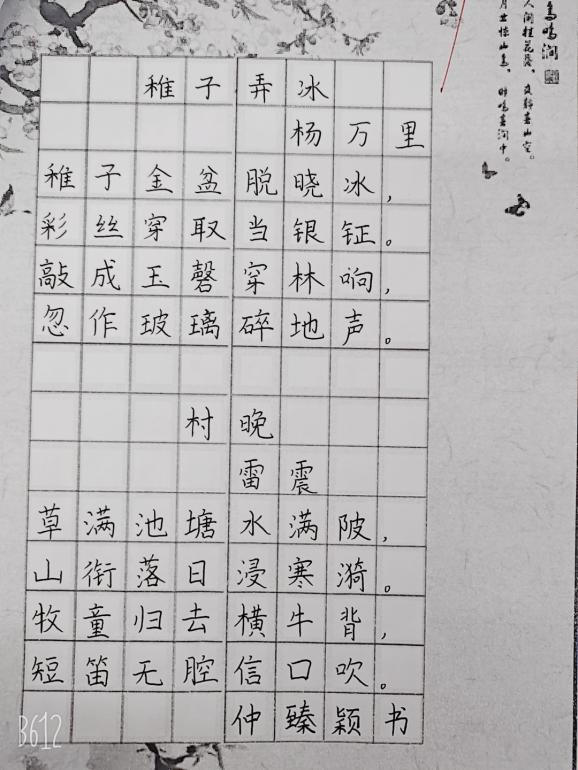 稚子弄冰
杨万里
稚子金盆脱晓冰，
彩丝穿取当银钲。
敲成玉磬穿林响，
忽作玻璃碎地声。
村晚
雷震
草满池塘水满陂，
山衔落日浸寒漪。
牧童归去横牛背，
短笛无腔信口吹。
仲臻颖书
鸟鸣涧
人闲桂花落，夜静春山空。
月出惊山鸟，时鸣春涧中。
B612